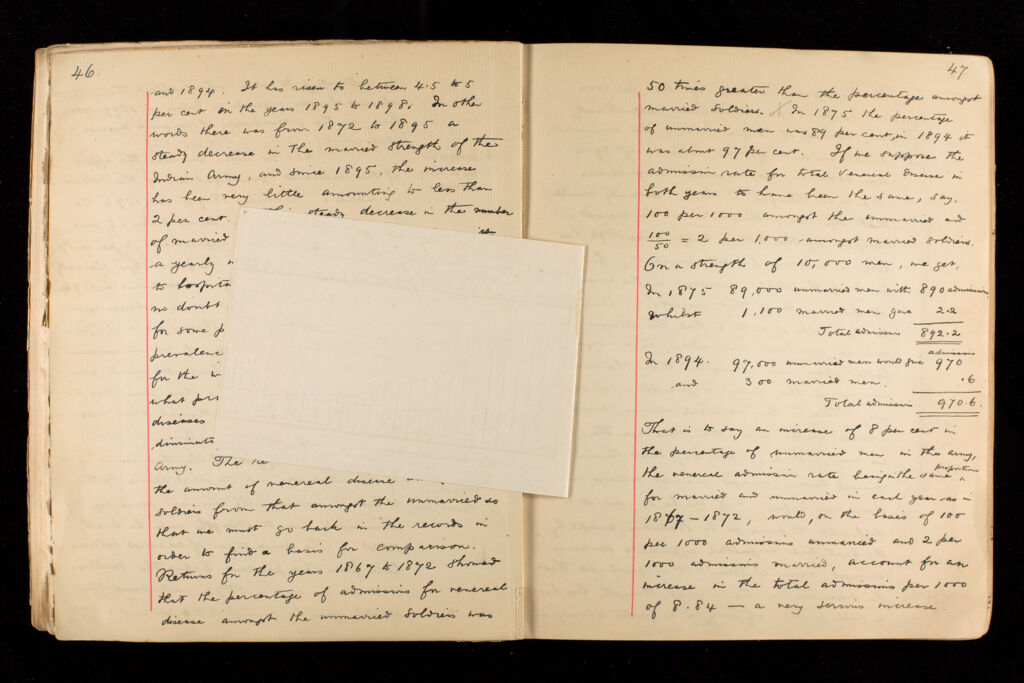 46
and 1894. It has risen to between 4.5 to 5
per cent in the years 1895 to 1898. In other
words there was from 1872 to 1895 a
steady decrease in the married strength of the
Indian Army, and since 1895, the increase
has been very little amounting to less than
2 per cent. steady decrease in the number
of married
a yearly
to hospita
no doubt
for some p
prevalenc
for the
what
diseases
diminute
Army. The
the amount of venereal disease
soldiers from that amongst the unmarried so
that we must go back in the records in
order to find a basis for comparison.
Returns for the years 1867 to 1872 showed
that the percentage of admissions for venereal
disease amongst the unmarried soldiers was
47
50 times greater than the percentage amongst
married soldiers. In 1875 the percentage
of unmarried men was 89 per cent, in 1894 it
was about 97 per cent. If we suppose the
admission rate for total venereal disease in
both years to have been the same, say,
100 per 1000 amongst the unmarried and
100/50 = 2 per 1,000 amongst married soldiers.
On a strength of 10,000 men, we get,
In 1875 89,000 unmarried men with 890 admissions
whilst 1,100 married men gave 2.2
Total admissions 892.2
In 1894. 97,000 unmarried men would give 970 admissions
and 300 married men. .6
Total admissions 970.6.
That is to say an increase of 8 per cent in
the percentage of unmarried men in the army,
the venereal admission rate being in the same proportions
for married and unmarried in each year as in
1867-1872, would, on the basis of 100
per 1000 admissions unmarried and 2 per
1000 admissions married, account for an
increase in the total admissions per 1000
of 8.84 — a very serious increase